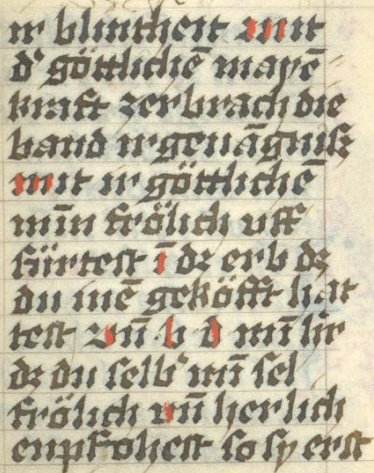 ir blintheit mit
d' göttlichē mayē
kraft zerbrach die
band ir genāgniß
mit ir göttlichē
mīn frölich uff
fürtest ī dz erb dz
du mē geköfft hat
test vn̄ b d mī hr
dz du selb' mī sel
frölich vn̄ herlich
enpfohest so sy erst